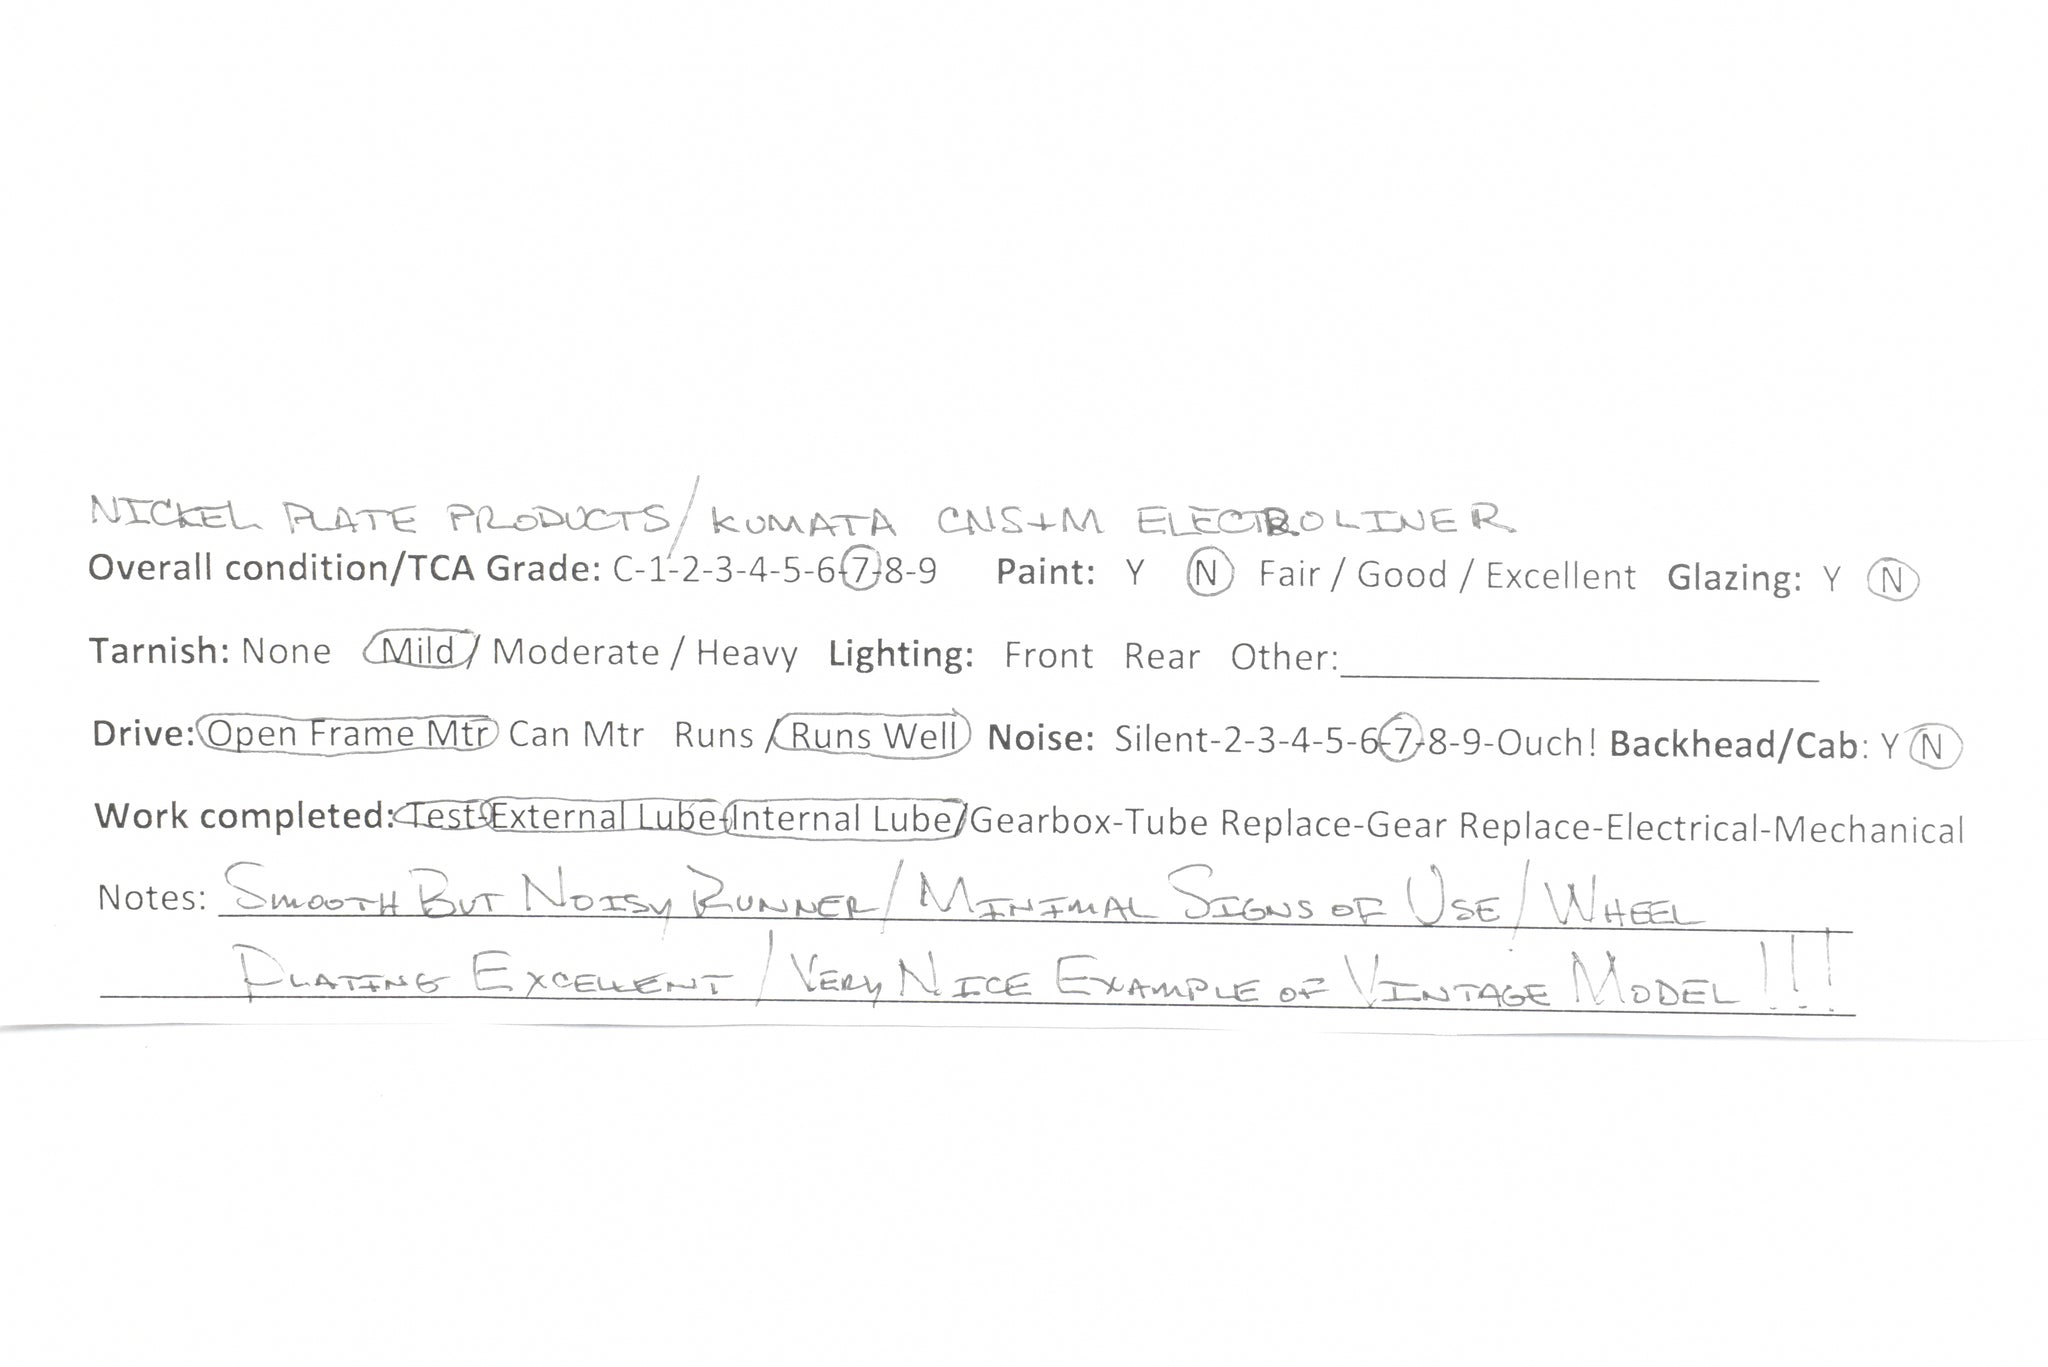 NICKEL PLATE PRODUCTS/KUMATA CNS+M ELECTROLINER
Overall condition/TCA Grade: C-1-2-3-4-5-6-7-8-9 Paint: Y N Fair / Good / Excellent Glazing: Y N
Tarnish: None Mild / Moderate / Heavy Lighting: Front Rear Other:
Drive: Open Frame Mtr Can Mtr Runs / Runs Well Noise: Silent-2-3-4-5-6-7-8-9-Ouch! Backhead/Cab: Y N
Work completed: Test-External Lube-Internal Lube/Gearbox-Tube Replace-Gear Replace-Electrical-Mechanical
Notes: SMOOTH BUT NOISY RUNNER/MINIMAL SIGNS OF USE/WHEEL
PLATING EXCELLENT/VERY NICE EXAMPLE OF VINTAGE MODEL!!!